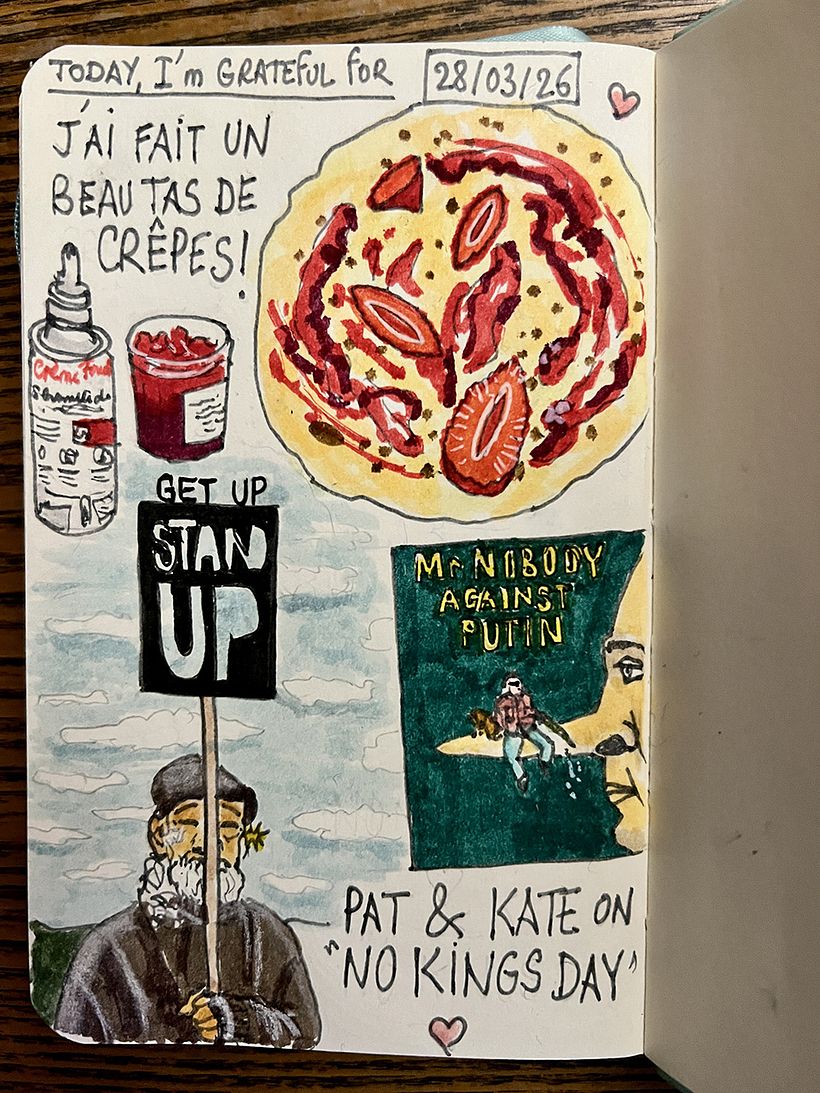 TODAY, I'm GRATEFUL FOR
28/03/26
J'AI FAIT UN
BEAU TAS DE
CRÊPES!
Crème
GET UP
STAND
UP
Mr NOBODY
AGAINST
PUTIN
PAT & KATE ON
"NO KINGS DAY"